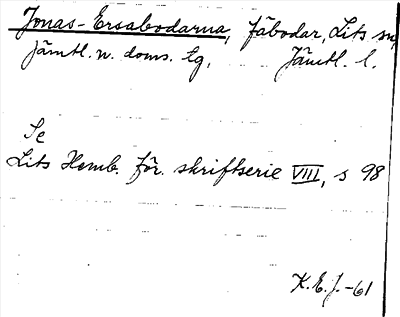 Jonas-Ersabodarna, fäbodar, Lits sn,
Jämtl. n. doms. tg, Jämtl. l.
Se
Lits Hemb. för. skriftserie VIII, s 98
K.E.J.-61